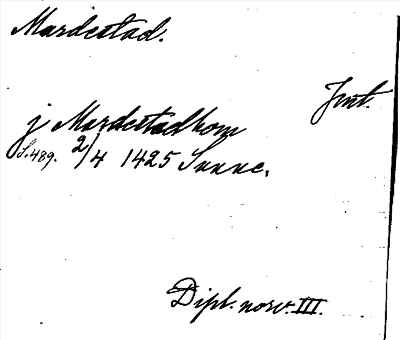 Mardestad.
Jmt.
j Mardestadhom
S. 489. 2/4 1425 Sunne.
Dipl. norv. III.